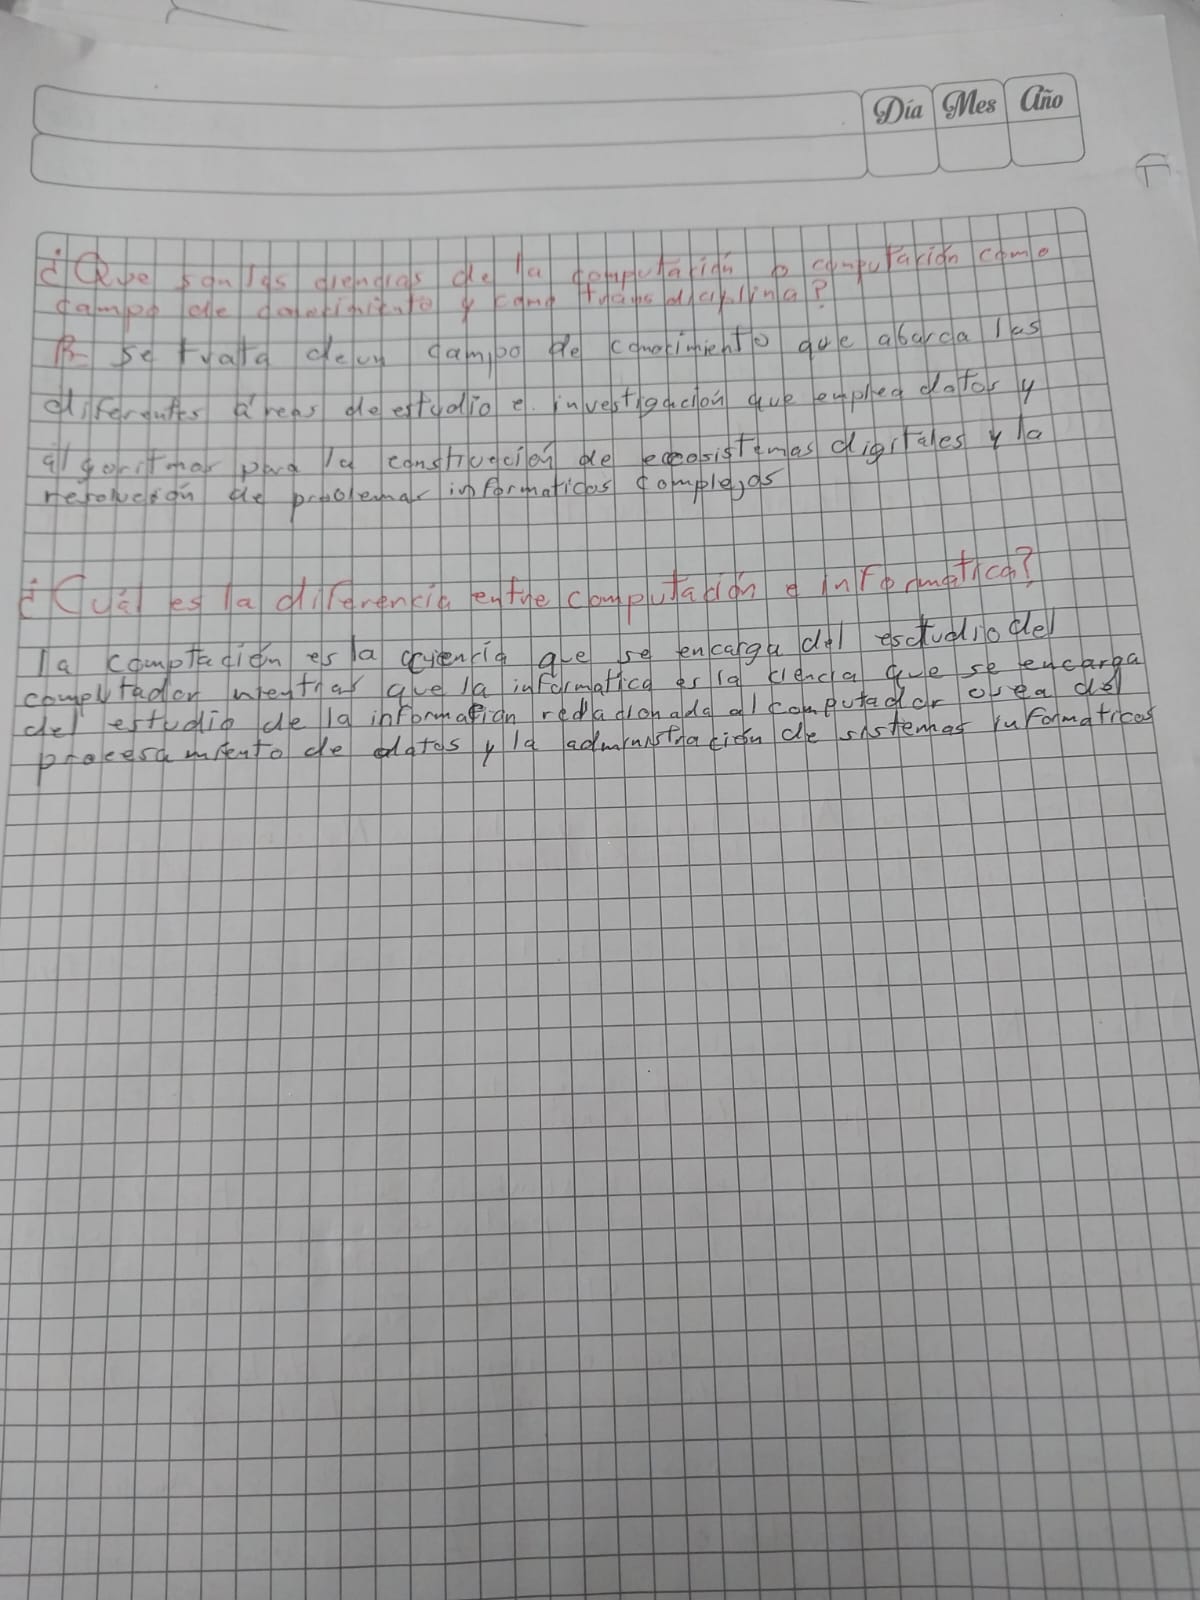 Día Mes Año
¿Que son las ciencias de la computación o computación como
campo de conocimiento y como transdiciplina?
R- se trata de un campo de conocimiento que abarca las
diferentes áreas de estudio e investigación que emplea datos y
algoritmos para la construcción de ecosistemas digitales y la
resolución de problemas informaticos complejos
¿Cuál es la diferencia entre computación e informatica?
la comptación es la ciencia que se encarga del esctudio del
computador mientras que la informatica es la ciencia que se encarga
del estudio de la información redacionada al computador osea del
procesamiento de datos y la administración de sistemas informaticos